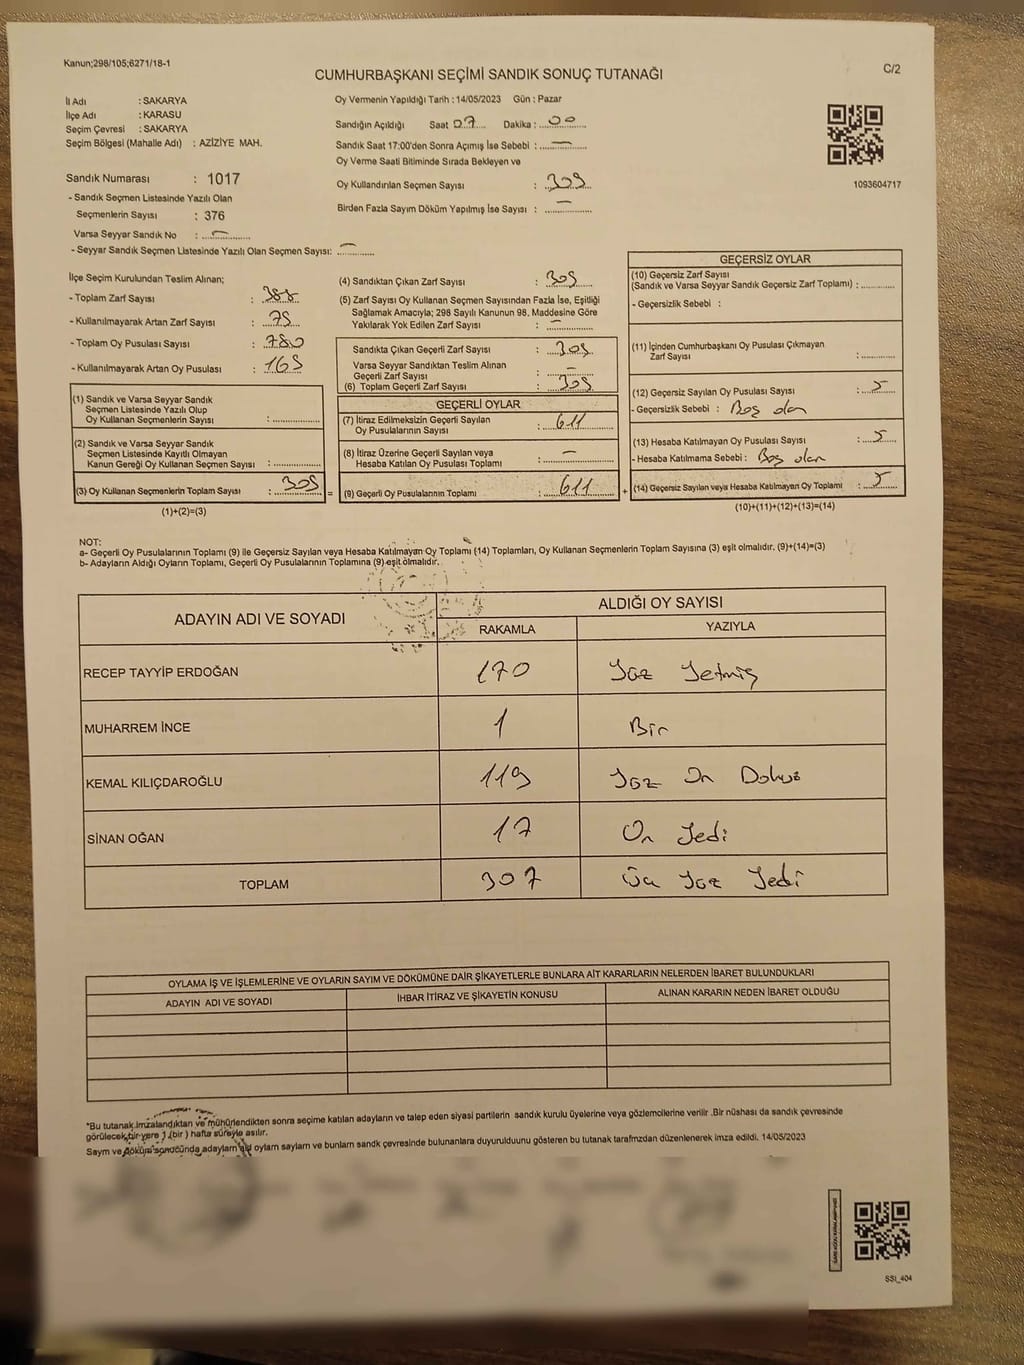 Kanun;298/105;6271/18-1
C/2
CUMHURBAŞKANI SEÇİMİ SANDIK SONUÇ TUTANAĞI
İl Adı : SAKARYA
İlçe Adı : KARASU
Seçim Çevresi : SAKARYA
Seçim Bölgesi (Mahalle Adı) : AZİZİYE MAH.
Sandık Numarası : 1017
- Sandık Seçmen Listesinde Yazılı Olan
Seçmenlerin Sayısı : 376
Varsa Seyyar Sandık No : –
- Seyyar Sandık Seçmen Listesinde Yazılı Olan Seçmen Sayısı: –
Oy Vermenin Yapıldığı Tarih : 14/05/2023 Gün : Pazar
Sandığın Açıldığı Saat 07 Dakika : 00
Sandık Saat 17:00'den Sonra Açımış İse Sebebi : –
Oy Verme Saati Bitiminde Sırada Bekleyen ve
Oy Kullandırılan Seçmen Sayısı : 309
Birden Fazla Sayım Döküm Yapılmış İse Sayısı : –
1093604717
İlçe Seçim Kurulundan Teslim Alınan;
- Toplam Zarf Sayısı :
- Kullanılmayarak Artan Zarf Sayısı : 79
- Toplam Oy Pusulası Sayısı : 780
- Kullanılmayarak Artan Oy Pusulası : 169
(1) Sandık ve Varsa Seyyar Sandık
Seçmen Listesinde Yazılı Olup
Oy Kullanan Seçmenlerin Sayısı :
(2) Sandık ve Varsa Seyyar Sandık
Seçmen Listesinde Kayıtlı Olmayan
Kanun Gereği Oy Kullanan Seçmen Sayısı :
(3) Oy Kullanan Seçmenlerin Toplam Sayısı : 309 =
(1)+(2)=(3)
(4) Sandıktan Çıkan Zarf Sayısı : 309
(5) Zarf Sayısı Oy Kullanan Seçmen Sayısından Fazla İse, Eşitliği
Sağlamak Amacıyla; 298 Sayılı Kanunun 98. Maddesine Göre
Yakılarak Yok Edilen Zarf Sayısı : –
Sandıkta Çıkan Geçerli Zarf Sayısı : 309
Varsa Seyyar Sandıktan Teslim Alınan
Geçerli Zarf Sayısı : –
(6) Toplam Geçerli Zarf Sayısı : 309
GEÇERLİ OYLAR
(7) İtiraz Edilmeksizin Geçerli Sayılan
Oy Pusulalarının Sayısı : 611
(8) İtiraz Üzerine Geçerli Sayılan veya
Hesaba Katılan Oy Pusulası Toplamı : –
(9) Geçerli Oy Pusulalarının Toplamı : 611 +
GEÇERSİZ OYLAR
(10) Geçersiz Zarf Sayısı
(Sandık ve Varsa Seyyar Sandık Geçersiz Zarf Toplamı) :
- Geçersizlik Sebebi :
(11) İçinden Cumhurbaşkanı Oy Pusulası Çıkmayan
Zarf Sayısı :
(12) Geçersiz Sayılan Oy Pusulası Sayısı : 5
- Geçersizlik Sebebi : Boş olan
(13) Hesaba Katılmayan Oy Pusulası Sayısı : 5
- Hesaba Katılmama Sebebi : Boş olan
(14) Geçersiz Sayılan veya Hesaba Katılmayan Oy Toplamı : 5
(10)+(11)+(12)+(13)=(14)
NOT:
a- Geçerli Oy Pusulalarının Toplamı (9) ile Geçersiz Sayılan veya Hesaba Katılmayan Oy Toplamı (14) Toplamları, Oy Kullanan Seçmenlerin Toplam Sayısına (3) eşit olmalıdır. (9)+(14)=(3)
b- Adayların Aldığı Oyların Toplamı, Geçerli Oy Pusulalarının Toplamına (9) eşit olmalıdır.
ADAYIN ADI VE SOYADI
ALDIĞI OY SAYISI
RAKAMLA YAZIYLA
RECEP TAYYİP ERDOĞAN 170 Yüz Yetmiş
MUHARREM İNCE 1 Bir
KEMAL KILIÇDAROĞLU 119 Yüz On Dokuz
SİNAN OĞAN 17 On Yedi
TOPLAM 307 Üç Yüz Yedi
OYLAMA İŞ VE İŞLEMLERİNE VE OYLARIN SAYIM VE DÖKÜMÜNE DAİR ŞİKAYETLERLE BUNLARA AİT KARARLARIN NELERDEN İBARET BULUNDUKLARI
ADAYIN ADI VE SOYADI İHBAR İTİRAZ VE ŞİKAYETİN KONUSU ALINAN KARARIN NEDEN İBARET OLDUĞU
*Bu tutanak imzalandıktan ve mühürlendikten sonra seçime katılan adayların ve talep eden siyasi partilerin sandık kurulu üyelerine veya gözlemcilerine verilir .Bir nüshası da sandık çevresinde
görülecek bir yere 1 (bir ) hafta süreyle asılır.
Sayım ve döküm sonucunda adayların oyların sayıların ve bunların sandık çevresinde bulunanlara duyurulduunu gösteren bu tutanak tarafımızdan düzenlenerek imza edildi. 14/05/2023
SSI_404